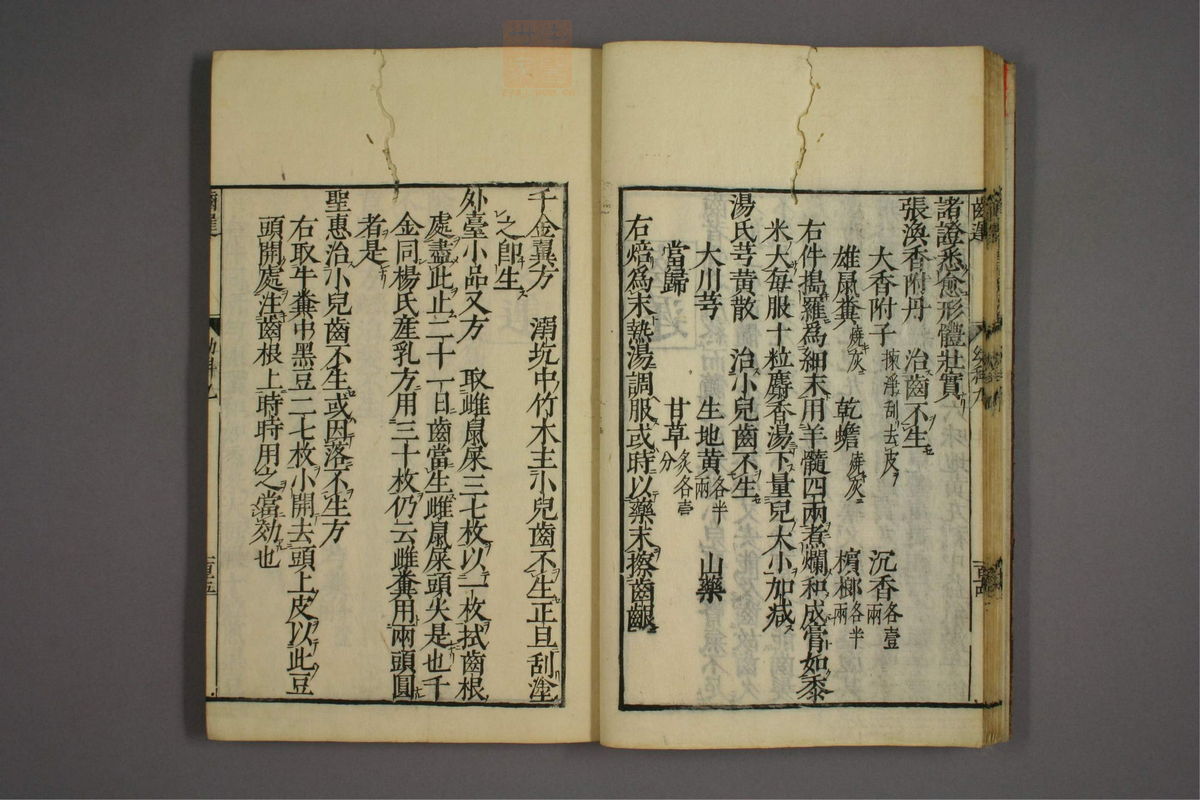 諸證悉愈形體壯實
張渙香附丹　治齒不生
大香附子揀淨刮去皮　沉香各壹兩
雄鼠糞燒灰　乾蟾燒灰　檳榔各半兩
右件搗羅爲細末用羊髓四兩煮爛和成膏如黍
米大每服十粒麝香湯下量兒大小加减
湯氏芎黄散　治小兒齒不生
大川芎　生地黄各半兩　山藥
當歸　甘草炙各壹分
右焙爲末熱湯調服或時以藥末擦齒齦
千金翼方　溺坑中竹木主小兒齒不生正旦刮塗
之卽生
外臺小品又方　取雌鼠屎三七枚以一枚拭齒根
處盡此止二十一日齒當生雌鼠屎頭尖是也千
金同楊氏産乳方用三十枚仍云雌糞用兩頭圓
者是
聖惠治小兒齒不生或因落不生方
右取牛糞中黑豆二七枚小開去頭上皮以此豆
頭開處注齒根上時時用之當効也